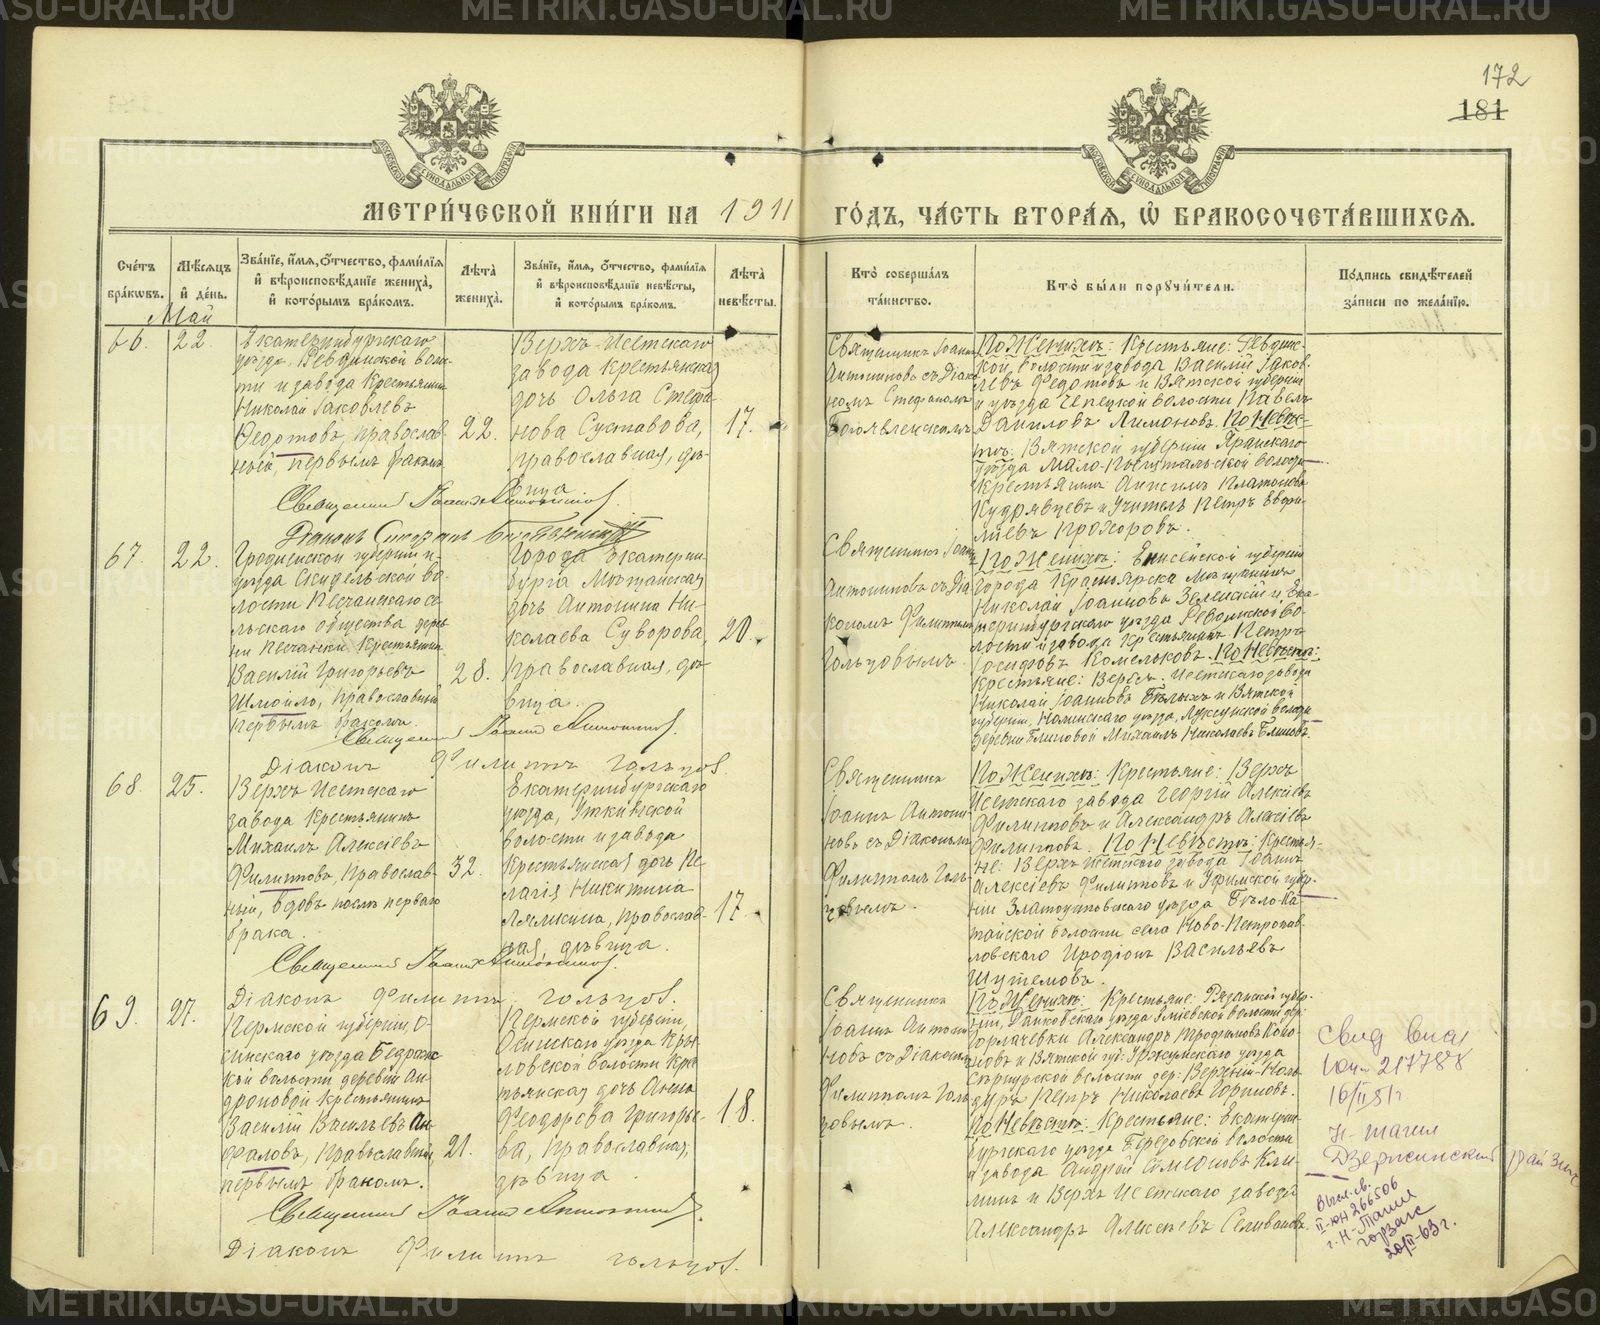 172
181
МЕТРИ́ЧЕСКОЙ КНИ́ГИ НА 1911 ГО́ДЪ, ЧА́СТЬ ВТОРА́Я, Ѡ БРАКОСОЧЕТА́ВШИХСЯ.
Сче́тъ бра́кωвъ.
Мѣ́сяцъ и де́нь.
Зва́нїе, и́мя, о́тчество, фами́лїя и вѣроисповѣ́данїе жениха̀, и кото́рымъ бра́комъ.
Лѣ́та жениха̀.
Зва́нїе, и́мя, о́тчество, фами́лїя и вѣроисповѣ́данїе невѣ́сты, и кото́рымъ бра́комъ.
Лѣ́та невѣ́сты.
Кто̀ соверша́лъ та́инство.
Кто̀ бы́ли поручи́тели.
По́дпись свидѣ́телей за́писи по жела́нїю.
Май
66.
22.
Екатеринбургскаго
уѣзда Ревдинской воло-
сти и завода крестьянинъ
Николай Іаковлевъ
Ѳедотовъ, православ-
ный, первымъ бракомъ
22.
Верхъ-Исетскаго
завода крестьянская
дочь Ольга Стефа-
нова Суставова,
православная, дѣ-
вица
17.
Священникъ Іоаннъ
Антониновъ съ Діако-
номъ Стефаномъ
Богоявленскимъ
По Женихѣ: Крестьяне: Ревдинс-
кой волости и завода Василій Іаков-
левъ Ѳедотовъ и Вятской губерніи
и уѣзда Чепецкой волости Павелъ
Даниловъ Лимоновъ. По Невѣс-
тѣ: Вятской губерніи Яранскаго
уѣзда
крестьянинъ Анисимъ Платоновъ
Кудрявцевъ и учитель Петръ
Прохоровъ.
Священникъ Іоаннъ Антониновъ.
Діаконъ Стефанъ Богоявленскій
67.
22.
Гродненской губерніи и
уѣзда Скидельской во-
лости Песчанскаго се-
льскаго общества дерев-
ни Песчанки крестьянинъ
Василій Григорьевъ
Шмойло, православный
первымъ бракомъ.
28.
Города Екатерин-
бурга Мѣщанская
дочь Антонина Ни-
колаева Суворова,
православная, дѣ-
вица.
20.
Священникъ Іоаннъ
Антониновъ съ Діа-
кономъ Филиппомъ
Гольцовымъ.
По Женихѣ: Енисейской губерніи
города Красноярска мѣщанинъ
Николай Іоанновъ Зеленскій и Ека-
теринбургскаго уѣзда Ревдинской во-
лости и завода крестьянинъ Петръ
Іосифовъ Комельковъ. По Невѣстѣ:
крестьяне: Верхъ-Исетскаго завода
Николай Іоанновъ Бѣлыхъ и Вятской
губерніи, Нолинскаго уѣзда,
деревни Блиновой Михаилъ Николаевъ Блиновъ.
Священникъ Іоаннъ Антониновъ.
Діаконъ Филиппъ Гольцов.
68.
25.
Верхъ-Исетскаго
завода крестьянинъ
Михаилъ Алексіевъ
Филипповъ, православ-
ный, вдовъ послѣ перваго
брака.
32.
Екатеринбургскаго
уѣзда, Уткинской
волости и завода
крестьянская дочь Пе-
лагія Никитина
Лялькина, православ-
ная, дѣвица.
17.
Священникъ
Іоаннъ Антони-
новъ съ Діакономъ
Филиппомъ Голь-
цовымъ.
По Женихѣ: Крестьяне: Верхъ
Исетскаго завода Георгій Алексіевъ
Филипповъ и Александръ Алексіевъ
Филипповъ. По Невѣстѣ: Крестья-
не: Верхъ-Исетскаго завода Іоаннъ
Алексіевъ Филипповъ и Уфимской губер-
ніи Златоустовскаго уѣзда Бѣло-Ка-
тайской волости села Ново-Петропав-
ловскаго Иродіонъ Васильевъ
Шутемовъ.
Священникъ Іоаннъ Антониновъ.
Діаконъ Филиппъ Гольцов.
69.
27.
Пермской губерніи, О-
синскаго уѣзда Бедряжс-
кой волости деревни Ан-
дроновой крестьянинъ
Василій Васильевъ Ан-
фаловъ, православный,
первымъ бракомъ.
21.
Пермской губерніи,
Осинскаго уѣзда Кры-
ловской волости кре-
стьянская дочь Анна
Ѳеодорова Григорье-
ва, православная,
дѣвица.
18.
Священникъ
Іоаннъ Антони-
новъ съ Діакономъ
Филиппомъ Голь-
цовымъ.
По Женихѣ: Крестьяне: Рязанской губер-
ніи, Данковскаго уѣзда Змѣевской волости дер:
Горлачевки Александръ Трофимовъ Коно-
новъ и Вятской губ: Уржумскаго уѣзда
Сернурской волости дер: Верхній-Ноль-
дуръ Петръ Николаевъ Горшковъ.
По Невѣстѣ: Крестьяне: Екатерин-
бургскаго уѣзда Березовской волости
и завода Андрей Симеоновъ Кли-
минъ и Верхъ-Исетскаго завода
Александръ Алексѣевъ Селивановъ.
Священникъ Іоаннъ Антониновъ.
Діаконъ Филиппъ Гольцов.
Свид
217788
16/II 51 г
Н-Тагил
Дзержинский рай загс
Выпл. св.
II-ЮН 266506
г. Н-Тагил
горзагс
20/II-63 г.
METRIKI.GASU-URAL.RU